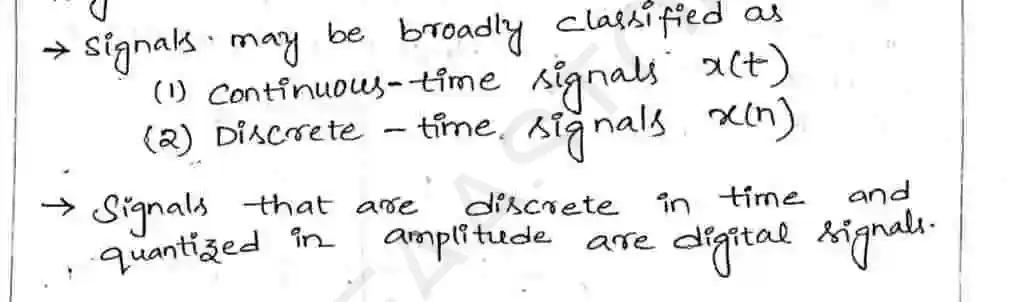 → Signals may be broadly classified as
(1) Continuous-time signals x(t)
(2) Discrete - time signals x(n)
→ Signals that are discrete in time and
quantized in amplitude are digital signals.